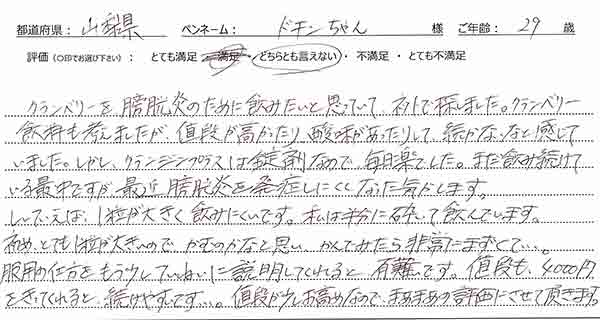 都道府県： 山梨県 ペンネーム： ドキンちゃん 様 ご年齢： 29 歳
評価（○印でお選び下さい）： とても満足 ・ 満足 ・ どちらとも言えない ・ 不満足 ・ とても不満足
クランベリーを膀胱炎のために飲みたいと思っていて、ネットで探しました。クランベリー
飲料も考えましたが、値段が高かったり、酸味があったりして、続かないなと感じて
いました。しかし、クランジンプラスは錠剤なので、毎日楽でした。まだ飲み続けて
いる最中ですが、最近膀胱炎を発症しにくくなった気がします。
しいていえば、1粒が大きく飲みにくいです。私は半分に砕いて飲んでいます。
初め、とても1粒が大きいので かむのかなと思い、かんでみたら非常にまずくて…。
服用の仕方をもう少していねいに説明してくれると、有難いです。値段も、4000円
をきってくれると、続けやすいです…。値段が少しお高めなので、まあまあの評価にさせて頂きます。